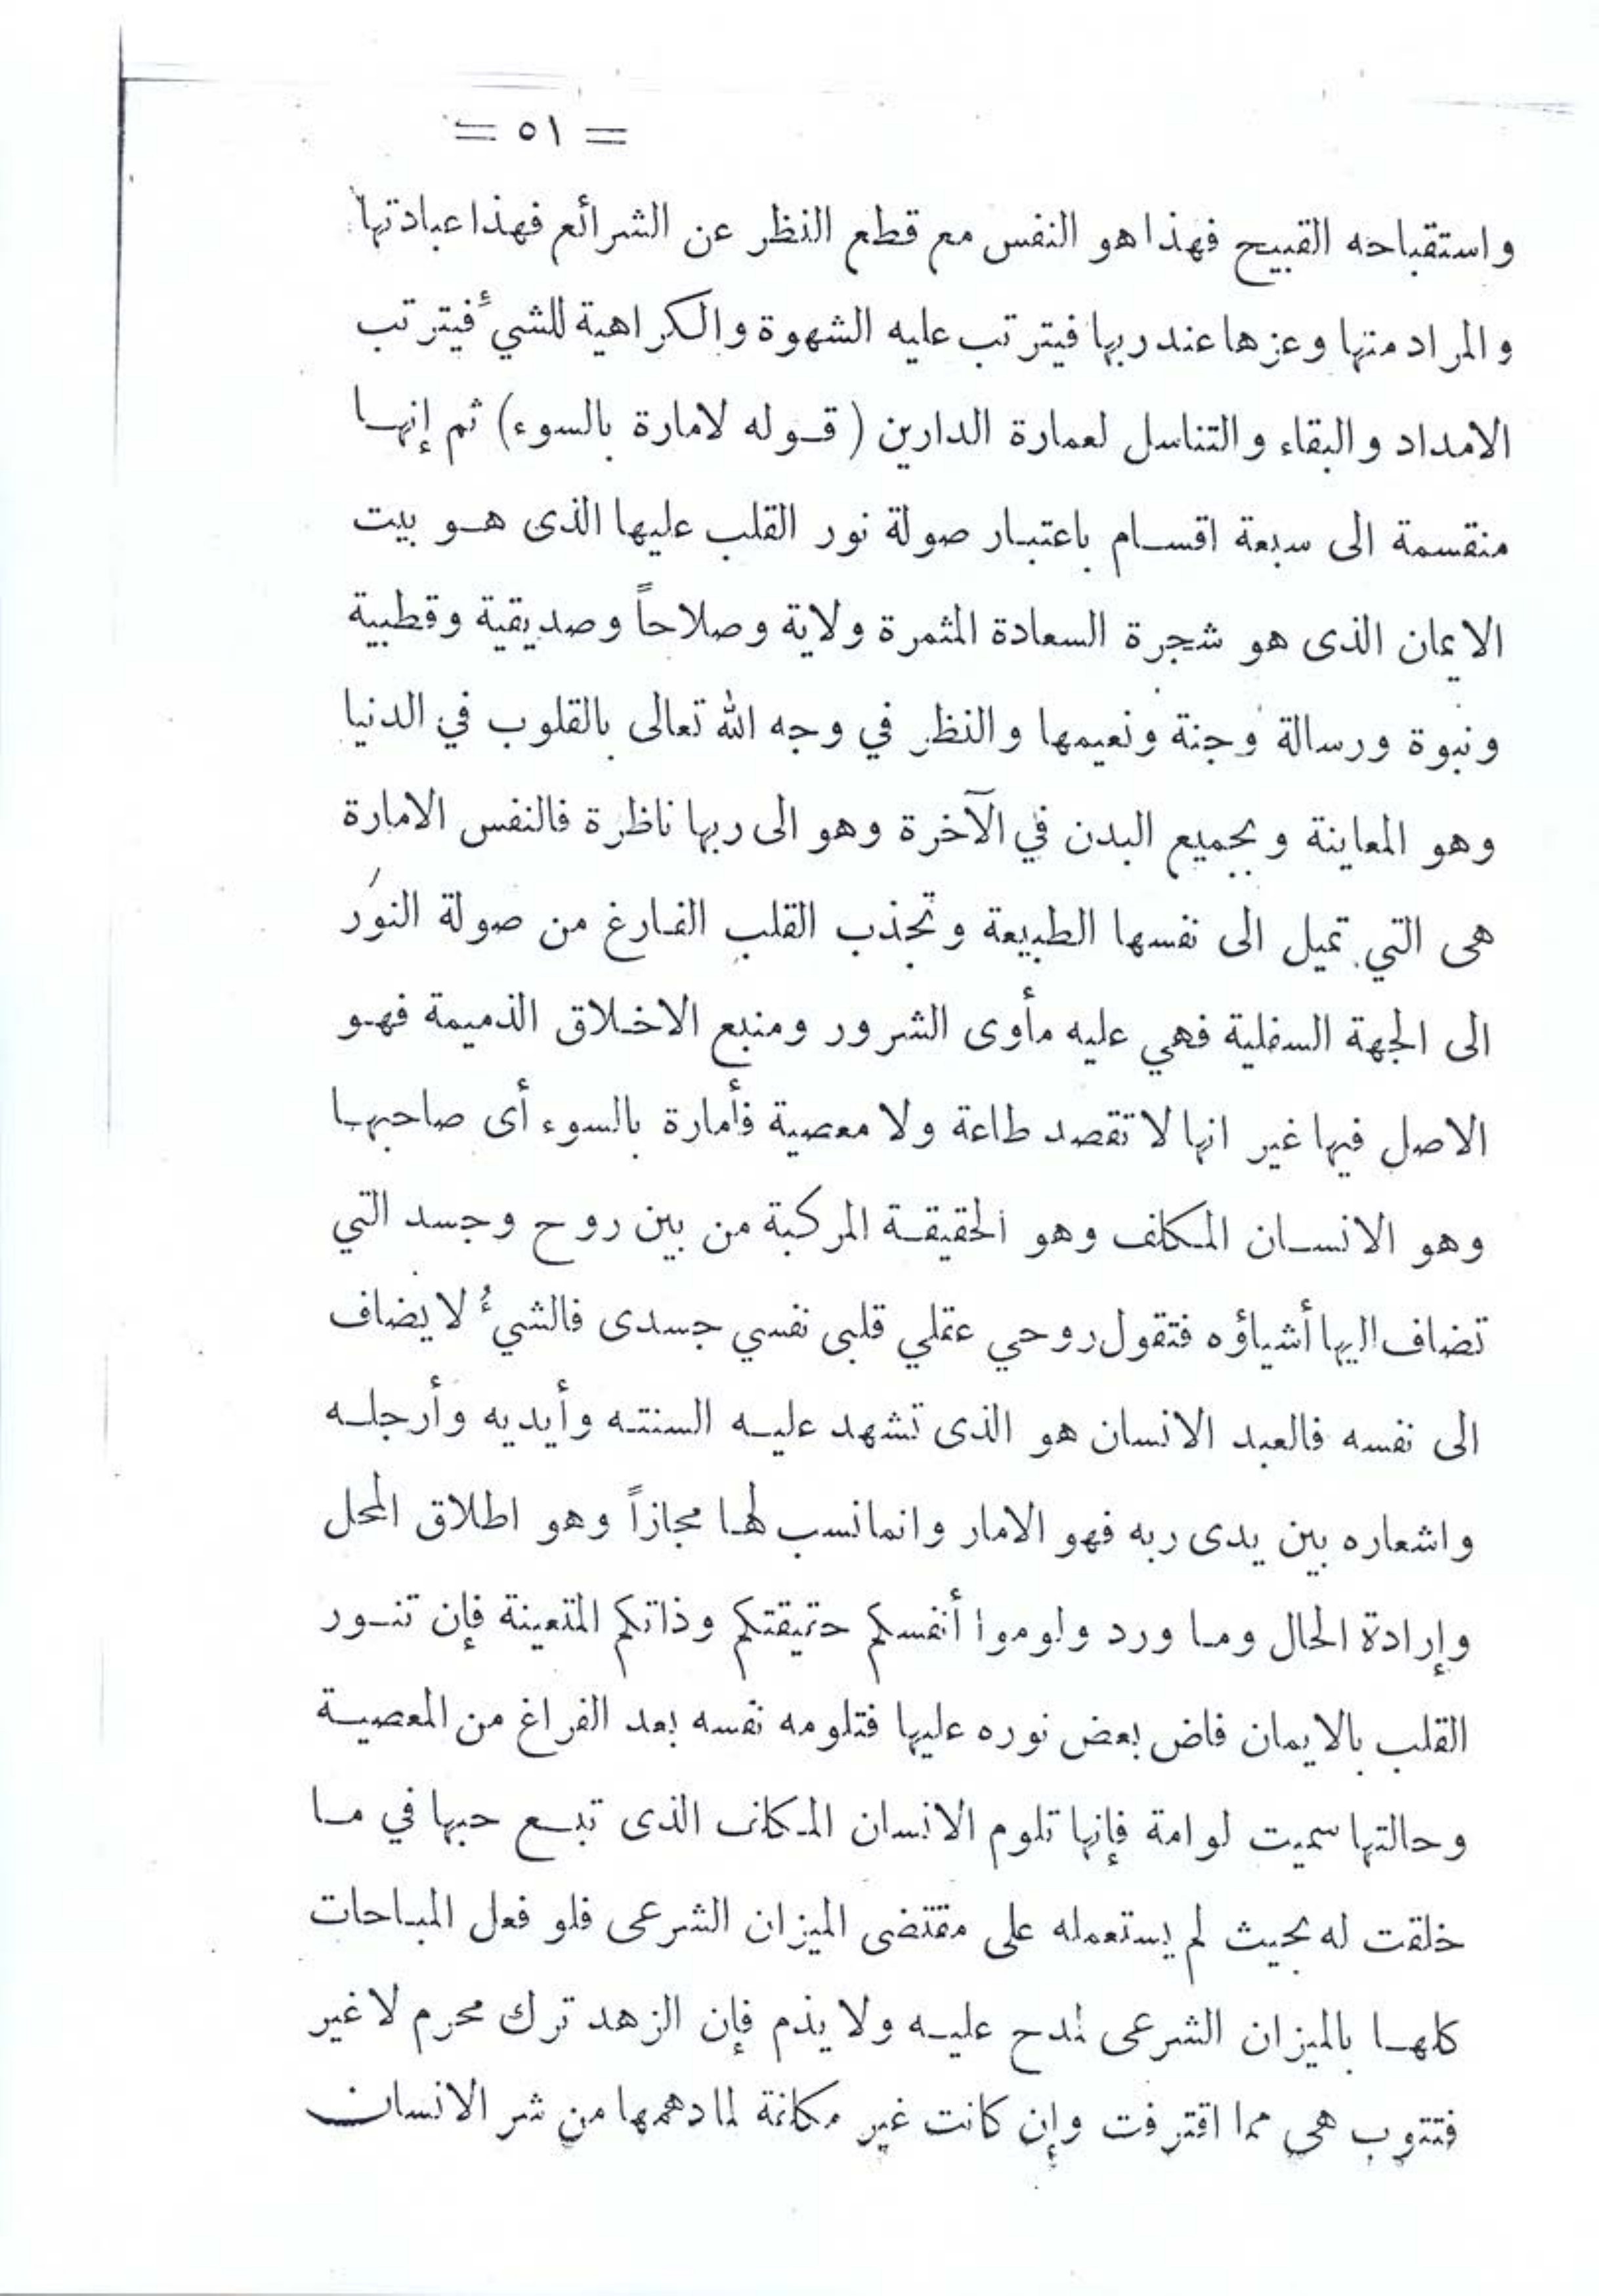 = ٥١ =
واستقباحه القبيح فهذا هو النفس مع قطع النظر عن الشرائع فهذا عبادتها
والمراد منها وعزها عند ربها فيترتب عليه الشهوة والكراهية للشيءٔ فيترتب
الامداد والبقاء والتناسل لعمارة الدارين ( قوله لامارة بالسوء) ثم إنها
منقسمة الى سبعة اقسام باعتبار صولة نور القلب عليها الذى هو بيت
الايمان الذى هو شجرة السعادة المثمرة ولاية وصلاحاً وصديقية وقطبية
ونبوة ورسالة وجنة ونعيمها والنظر في وجه الله تعالى بالقلوب في الدنيا
وهو المعاينة وبجميع البدن في الآخرة وهو الى ربها ناظرة فالنفس الامارة
هى التي تميل الى نفسها الطبيعة وتجذب القلب الفارغ من صولة النور
الى الجهة السفلية فهي عليه مأوى الشرور ومنبع الاخلاق الذميمة فهو
الاصل فيها غير انها لا تقصد طاعة ولا معصية فأمارة بالسوء أى صاحبها
وهو الانسان المكلف وهو الحقيقة المركبة من بين روح وجسد التي
تضاف اليها أشياؤه فتقول روحي عقلي قلبى نفسي جسدى فالشيءُ لا يضاف
الى نفسه فالعبد الانسان هو الذى تشهد عليه السنته وأيديه وأرجله
واشعاره بين يدى ربه فهو الامار وانما نسب لها مجازاً وهو اطلاق المحل
وإرادة الحال وما ورد ولوموا أنفسكم حقيقتكم وذاتكم المتعينة فإن تنور
القلب بالايمان فاض بعض نوره عليها فتلومه نفسه بعد الفراغ من المعصية
وحالتها سميت لوامة فإنها تلوم الانسان المكلف الذى تبع حبها في ما
خلقت له بحيث لم يستعمله على مقتضى الميزان الشرعى فلو فعل المباحات
كلها بالميزان الشرعى لمدح عليه ولا يذم فإن الزهد ترك محرم لا غير
فتتوب هى مما اقترفت وإن كانت غير مكلفة لما دهمها من شر الانسان